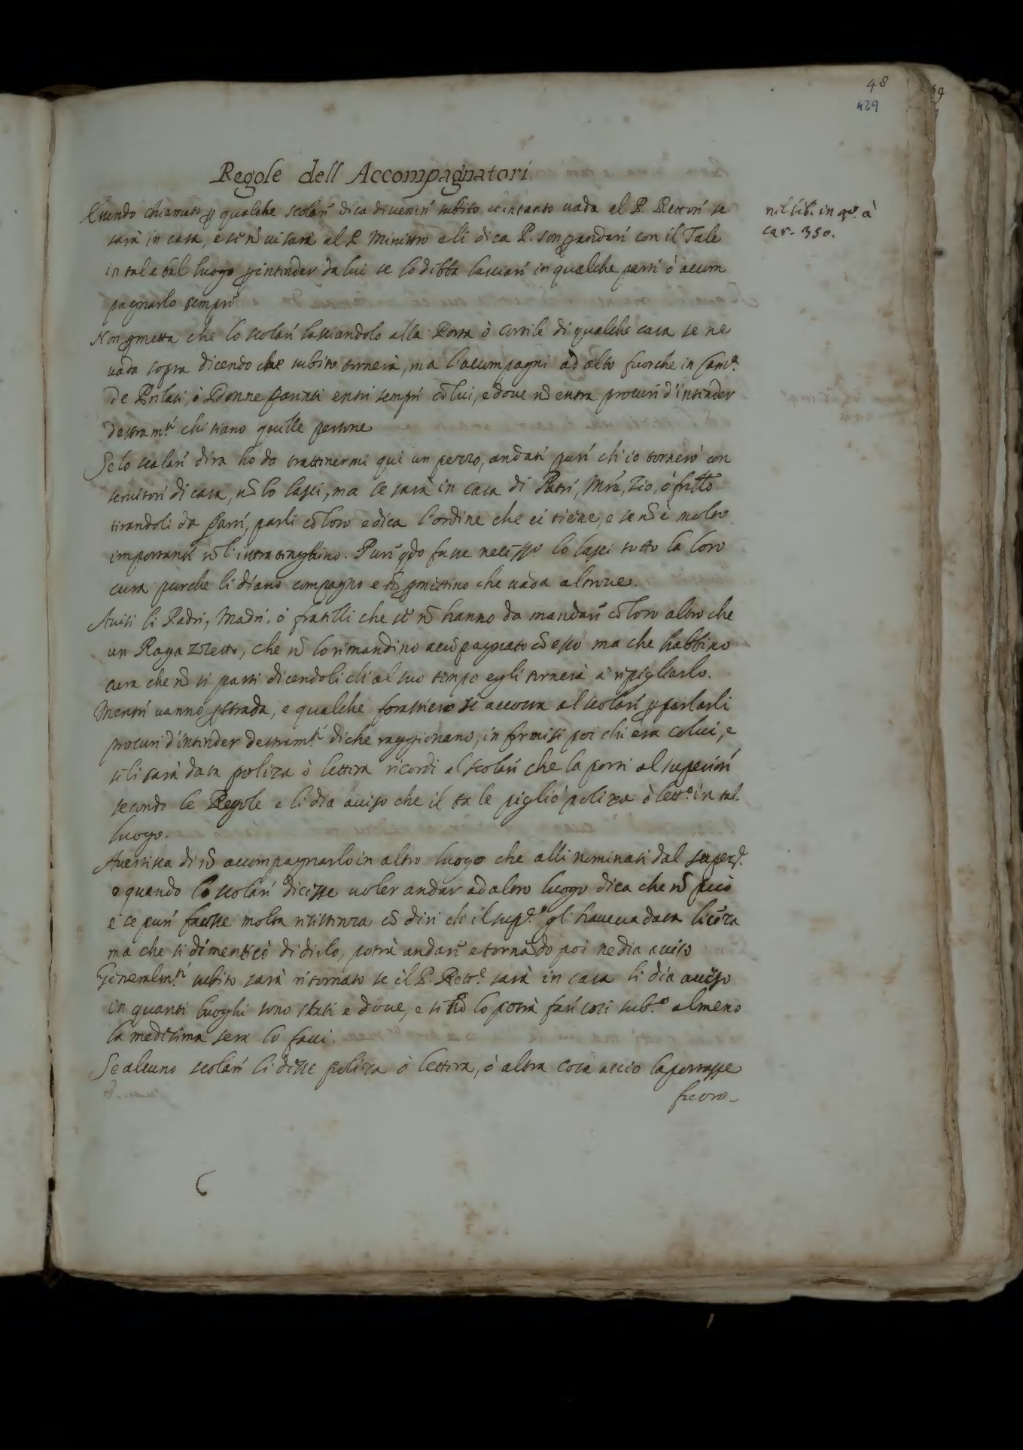 48
429
Regole dell Accompagnatori
nel lib. in q.º à
car. 350.
Quando chiamato p qualche scolare dica di venire subito, et intanto vada al P. Rettore se
sarà in casa, e se nõ vi sarà al P. Ministro e li dica P. son p andare con il Tale
in tal e tal luogo p intender da lui se lo debba lasciare in qualche parte ò accom
pagnarlo sempre
Non pmetta che lo scolare lasciandolo alla Porta ò Cortile di qualche casa se ne
vada sopra dicendo che subito tornerà, ma l'accompagni ad alto fuorche in Cam.ª
De Prelati, ò Donne entri sempre cõ lui, e dove nõ entra procuri d'intender
destram.te chi siano quelle persone
Se lo scolare dirà ho da trattenermi qui un pezzo, andate pure ch'io tornerò con
servitori di casa, nõ lo lasci, ma se sarà in casa di Patri, Mrẽ, Zio, ò frello
tirandoli da parte, parli cõ loro e dica l'ordine che ei tiene, e se nõ è molto
importante nõ l'intratenghino. Pure qdo fusse necessº lo lasci sotto la loro
cura purche li diano compagno e nõ pmettino che vada altrove.
Avisi li Padri, Madri, ò fratelli che se nõ hanno da mandare cõ loro altro che
un Ragazzetto, che nõ lo rimandino accõpagnato cõ esso ma che habbino
cura che nõ si parti dicendoli ch'al suo tempo egli tornerà à ripigliarlo.
Mentre vanno p strada, e qualche forastiero se accosta al scolare p parlarli
procuri d'intender destram.te di che raggionano, informisi poi chi era colui, e
se li sarà data poliza ò lettera ricordi al scolare che la porti al superiore
secondo le Regole e li dia aviso che il tale pigliò poliza ò lett.ª in tal
luogo.
Avertisca di nõ accompagnarlo in altro luogo che alli nominati dal super.e
e quando lo scolare dicesse voler andar ad altro luogo dica che nõ può
e se pure facesse molta resistenza cõ dire ch'il sup.re gl'haveva data licẽza
ma che si dimenticò di dirlo, potrà andare e tornãdo poi ne dia aviso
Generalm.te subito sarà ritornato se il P. Rett.e sarà in casa li dia aviso
in quanti luoghi sono stati e dove, e se nõ lo potrà fare così sub.º almeno
la medesima sera lo facci.
Se alcuno scolare li desse poliza ò lettera, ò altra cosa acciò la portasse
fuora-